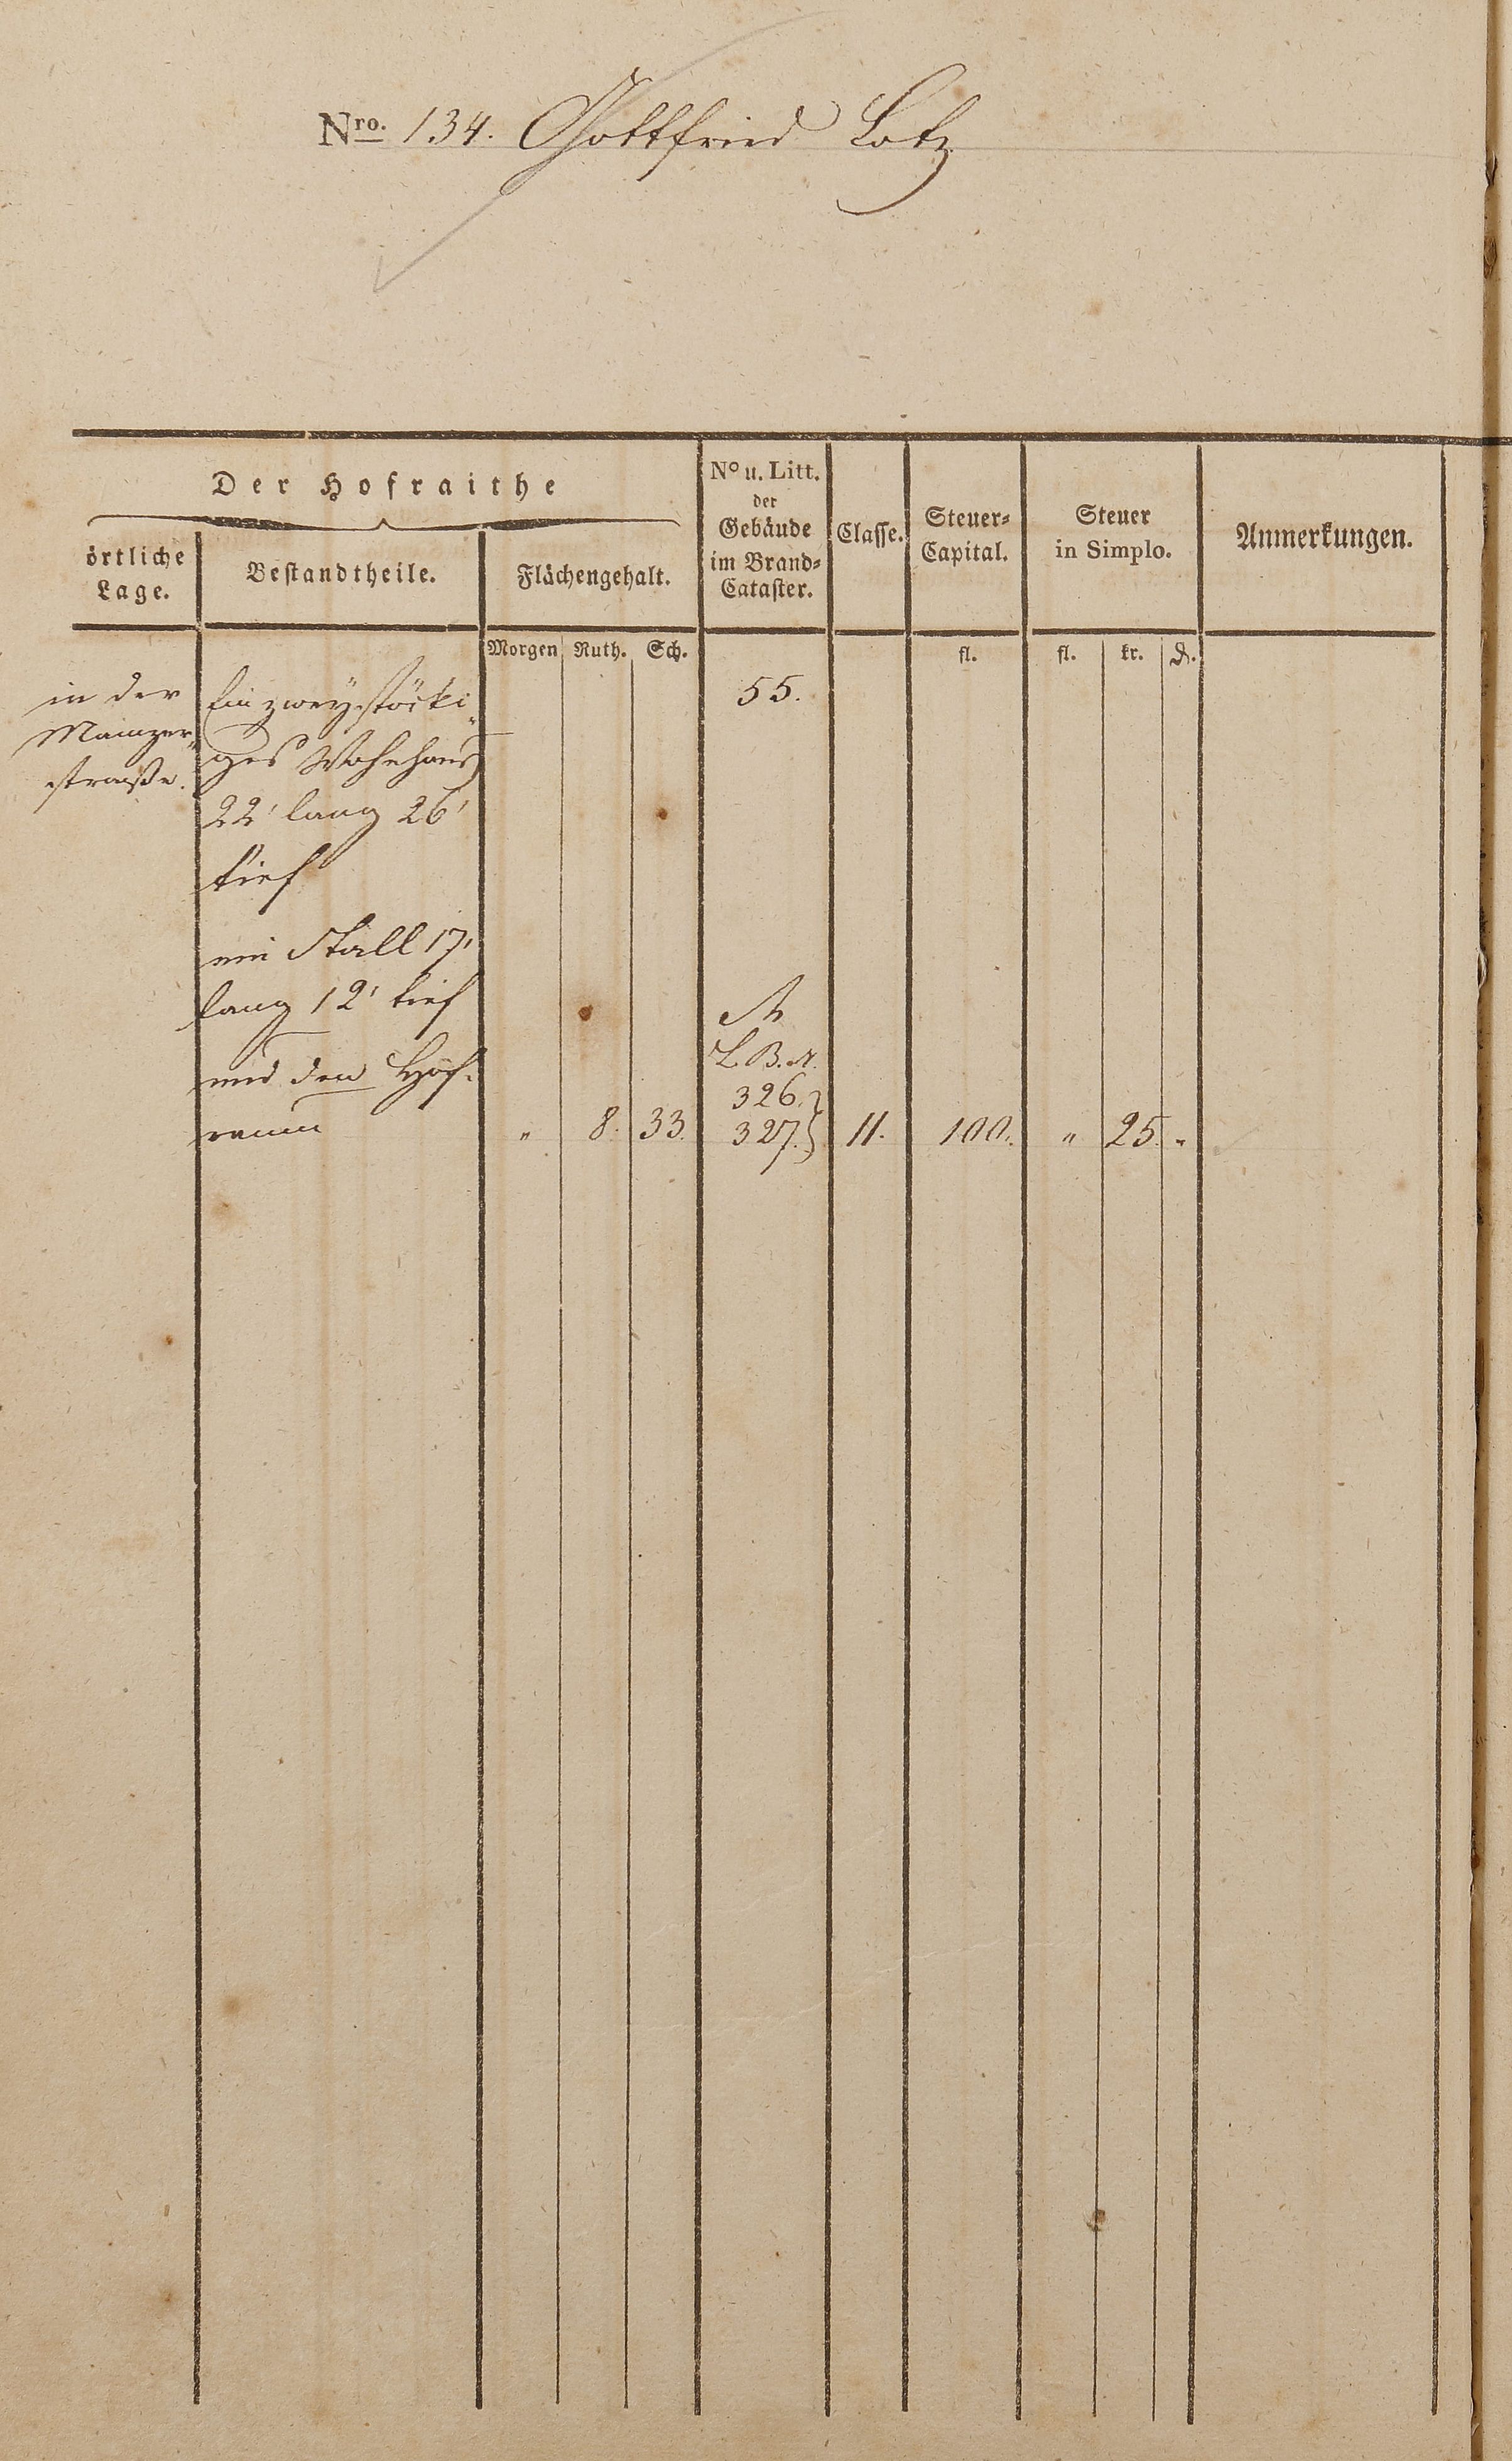 Nro. 134. Gottfried Lotz
Der Hofraithe
örtliche
Lage.
Bestandtheile.
Flächengehalt.
No u. Litt.
der
Gebäude
im Brand-
Cataster.
Classe.
Steuer-
Capital.
Steuer
in Simplo.
Anmerkungen.
Morgen Ruth. Sch.
fl.
fl. kr. ₰.
in der
Mainzer„
straße.
Ein zwey stöcki„
ges Wohnhaus
22' lang 26'
tief
ein Stall 17'
lang 12' tief
und den Hof-
raum
55.
L. B. N.
326.
327. }
„ 8. 33.
11.
100.
„ 25. „